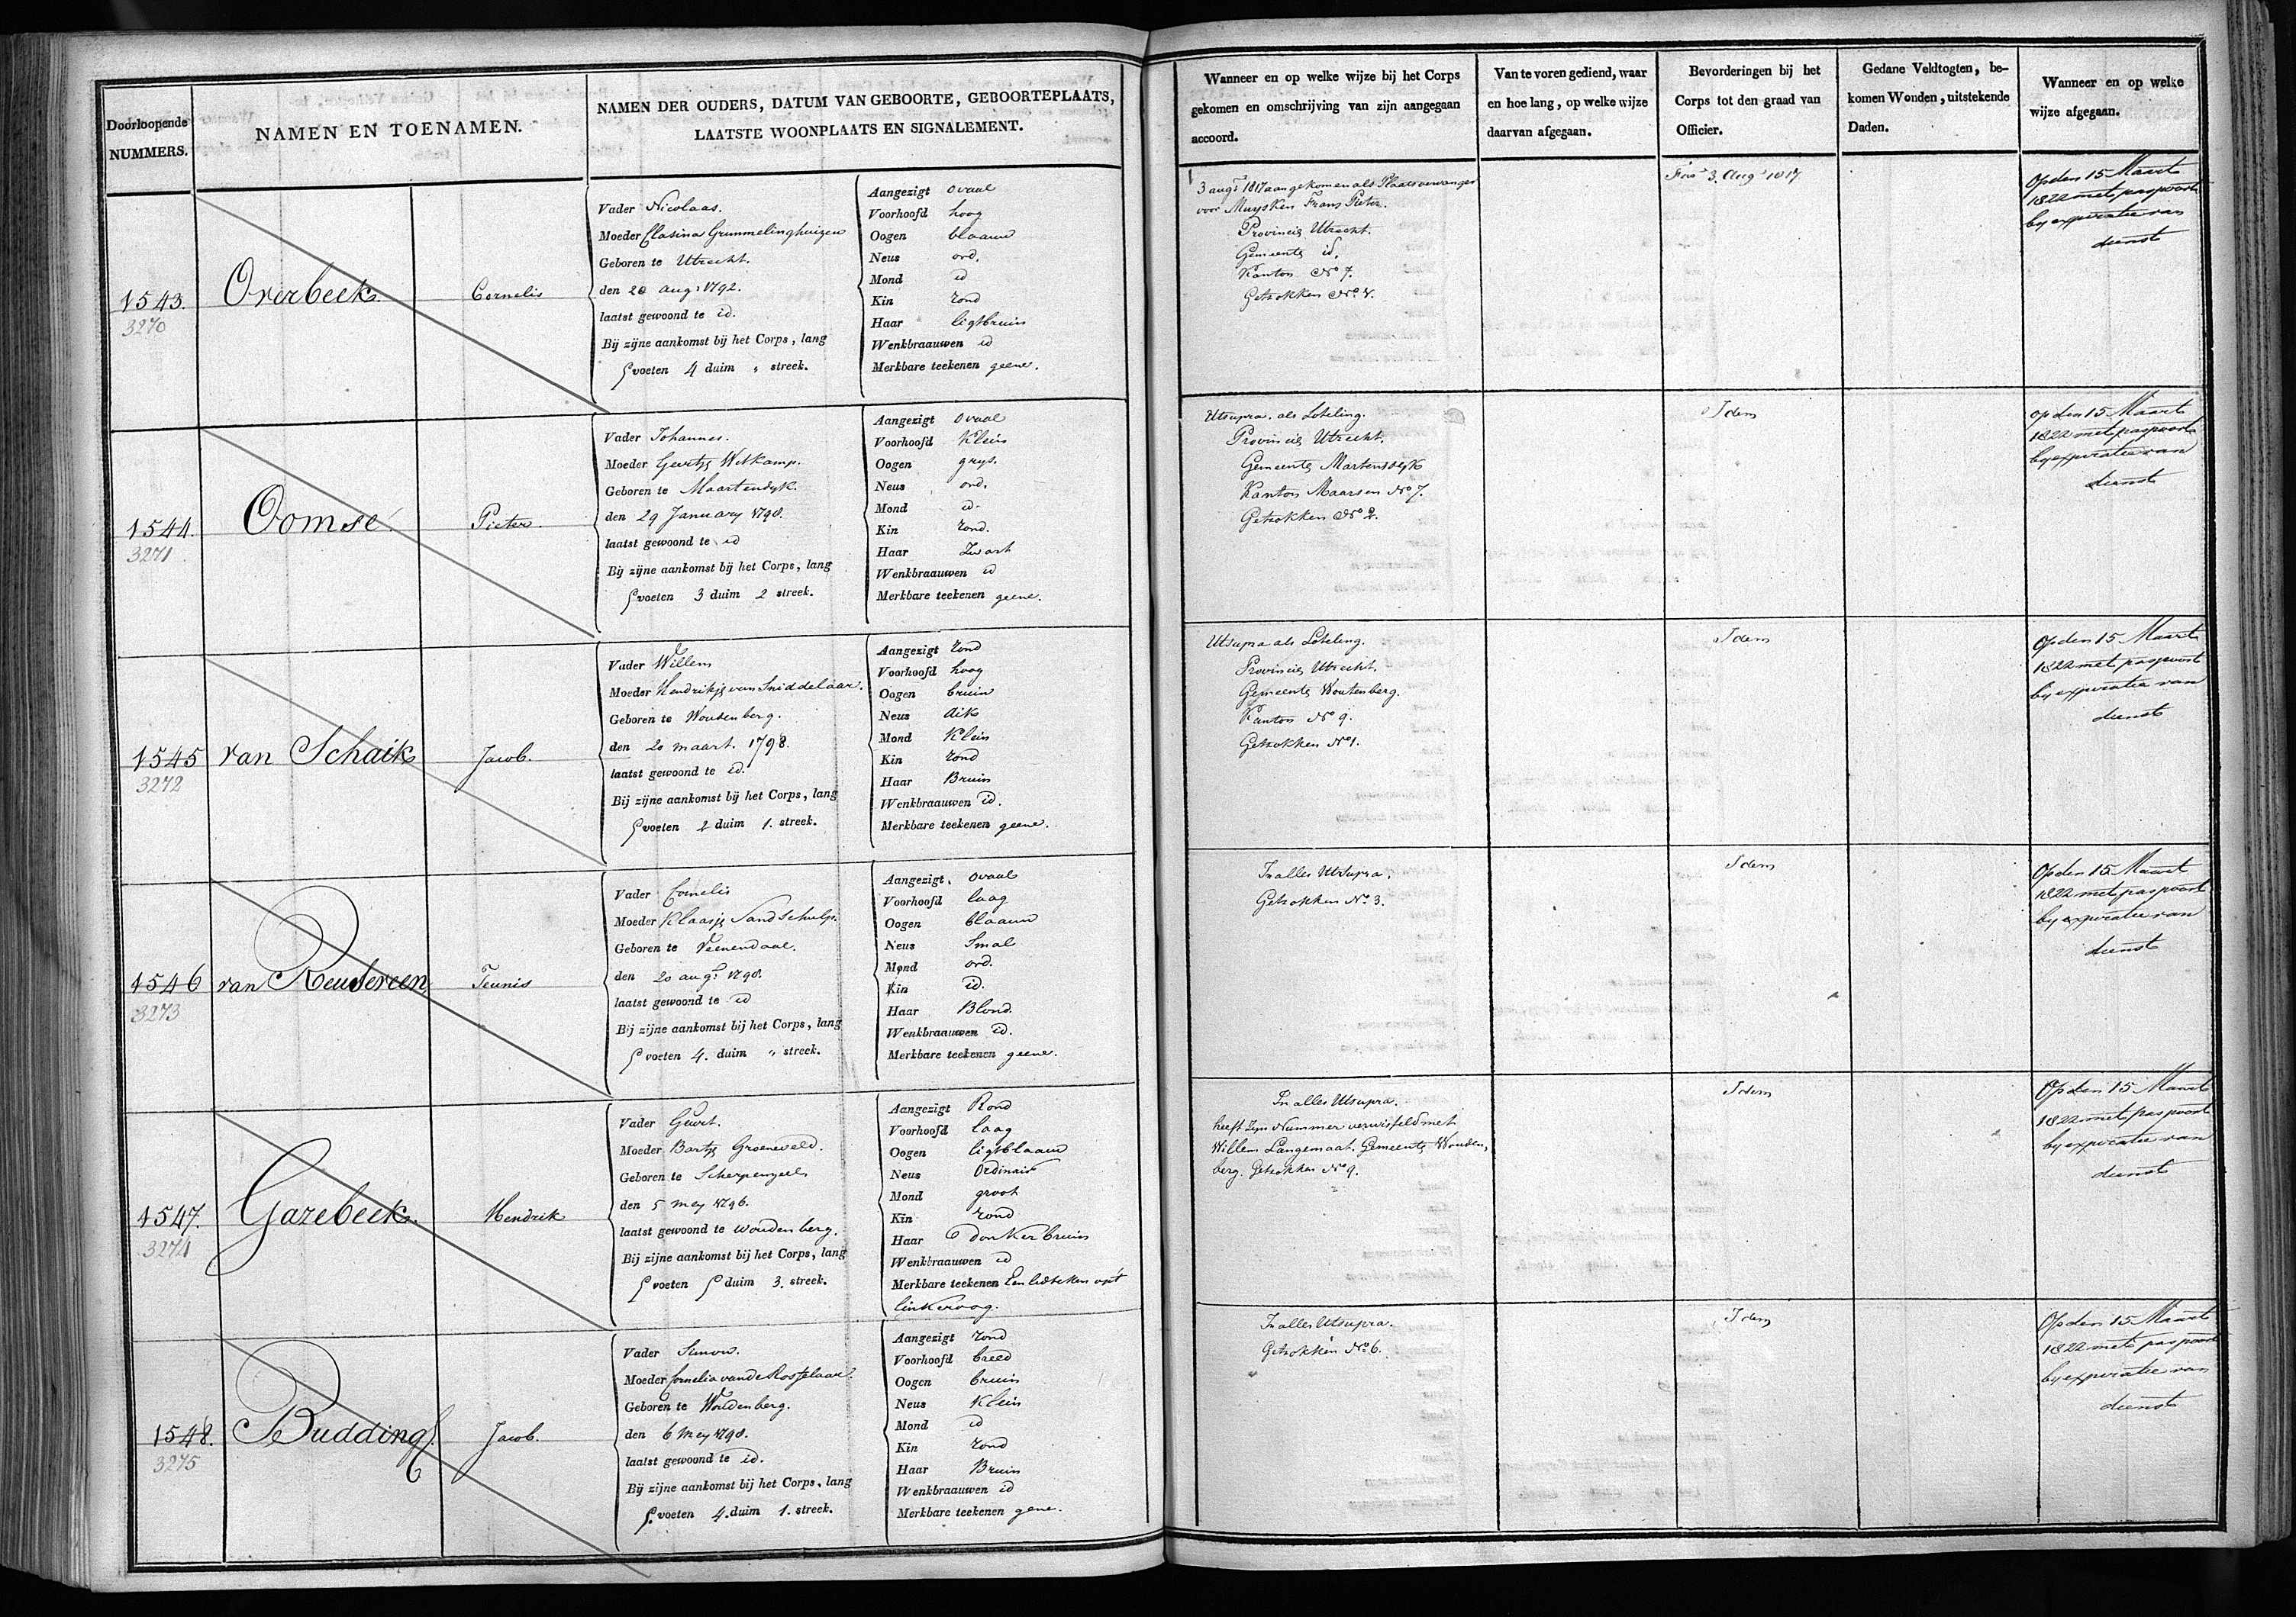 Doorloopende
NUMMERS.
NAMEN EN TOENAMEN.
NAMEN DER OUDERS, DATUM VAN GEBOORTE, GEBOORTEPLAATS,
LAATSTE WOONPLAATS EN SIGNALEMENT.
Wanneer en op welke wijze bij het Corps
gekomen en omschrijving van zijn aangegaan
accoord.
Van te voren gediend, waar
en hoe lang, op welke wijze
daarvan afgegaan.
Bevorderingen bij het
Corps tot den graad van
Officier.
Gedane Veldtogten, be-
komen Wonden, uitstekende
Daden.
Wanneer en op welke
wijze afgegaan.
1543.
3270
Overbeek.
Cornelis
Vader Nicolaas.
Moeder Clasina Grummelinghuizen
Geboren te Utrecht.
den 20 aug: 1792.
laatst gewoond te id.
Bij zijne aankomst bij het Corps, lang
5 voeten 4 duim " streek.
Aangezigt ovaal
Voorhoofd hoog
Oogen blaauw
Neus ord.
Mond id
Kin rond
Haar ligtbruin
Wenkbraauwen id
Merkbare teekenen geene.
3 augt 1817 aangekomen als Plaatsvervanger
voor Muysken Frans Pieter.
Provincie Utrecht.
Gemeente id.
Kanton No 7.
Getrokken No. 4.
3. Aug 1817
Op den 15 Maart
1822 met paspoort
by expiratie van
dienst
1544.
3271
Oomse.
Pieter.
Vader Johannes.
Moeder Geertje Witkamp.
Geboren te Maartendyk.
den 29 January 1798.
laatst gewoond te id
Bij zijne aankomst bij het Corps, lang
5 voeten 3 duim 2 streek.
Aangezigt Ovaal
Voorhoofd Klein
Oogen grys.
Neus ord.
Mond id.
Kin rond.
Haar Zwart
Wenkbraauwen id
Merkbare teekenen geene.
Utsupra. als Loteling.
Provincie Utrecht.
Gemeente Martensdyk
Kanton Maarsen No 7.
Getrokken No 2.
Idem
op den 15 Maart
1822 met paspoort
by expiratie van
dienst
1545
3272
van Schaik
Jacob.
Vader Willem
Moeder Hendrikje van Sniddelaar.
Geboren te Woudenberg.
den 20 maart. 1798.
laatst gewoond te id.
Bij zijne aankomst bij het Corps, lang
5 voeten 2 duim 1. streek.
Aangezigt rond
Voorhoofd hoog
Oogen bruin
Neus dik
Mond Klein
Kin rond
Haar Bruin
Wenkbraauwen id.
Merkbare teekenen geene.
Utsupra als Loteling.
Provincie Utrecht.
Gemeente Woutenberg.
Kanton No 9.
Getrokken No 1.
Idem
Op den 15 Maart
1822 met paspoort
by expiratie van
dienst
1546
3273
van Reuderveen
Teunis
Vader Cornelis
Moeder Klaasje Sandschulp.
Geboren te Veenendaal.
den 20 augt 1798.
laatst gewoond te id
Bij zijne aankomst bij het Corps, lang
5 voeten 4. duim " streek.
Aangezigt. ovaal
Voorhoofd laag
Oogen blaauw
Neus Smal
Mond ord.
Kin id.
Haar Blond.
Wenkbraauwen id.
Merkbare teekenen geene.
In alles Utsupra.
Getrokken No 3.
Idem
Op den 15 Maart
1822 met paspoort
by expiratie van
dienst
1547.
3274
Gazebeek.
Hendrik
Vader Geurt.
Moeder Bartje Groeneveld.
Geboren te Scherpenzeel
den 5 mey 1796.
laatst gewoond te Woudenberg.
Bij zijne aankomst bij het Corps, lang
5 voeten 5 duim 3. streek.
Aangezigt Rond
Voorhoofd laag
Oogen ligtblaauw
Neus Ordinair
Mond groot
Kin rond
Haar donkerbruin
Wenkbraauwen id
Merkbare teekenen Een lidteken op't
linkeroog.
In alles Utsupra.
heeft zyn Nummer verwisseld met
Willem Langemaat. Gemeente Wouden,
berg. Getrokken No 9.
Idem
Op den 15 Maart
1822 met paspoort
by expiratie van
dienst
1548.
3275
Budding.
Jacob.
Vader Simon.
Moeder Cornelia van de Rosselaar.
Geboren te Woudenberg.
den 6 Mey 1798.
laatst gewoond te id.
Bij zijne aankomst bij het Corps, lang
5. voeten 4. duim 1. streek.
Aangezigt rond
Voorhoofd breed
Oogen bruin
Neus Klein
Mond id
Kin rond
Haar Bruin
Wenkbraauwen id
Merkbare teekenen gene.
In alles Utsupra.
Getrokken No. 6.
Idem
Op den 15 Maart
1822 met paspoort
by expiratie van
dienst